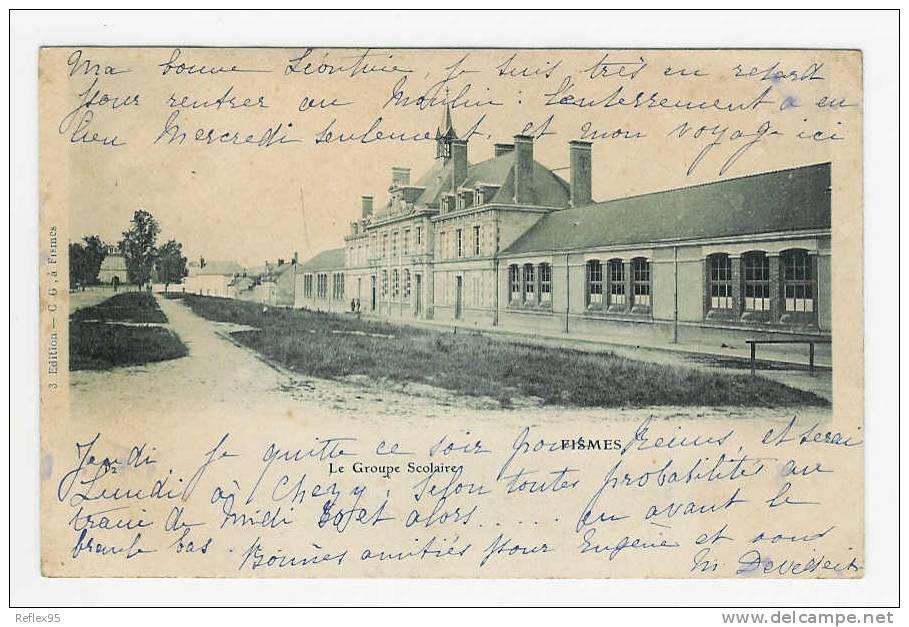 Ma bonne Léontine, je suis très en retard
pour rentrer au Moulin : L'enterrement a eu
lieu Mercredi seulement, et mon voyage ici
3 Edition — C. G., à Fismes
FISMES
Le Groupe Scolaire
Jeudi je quitte ce soir pour Reims, et serai
Lundi à Chezy, selon toutes probabilités au
train de Midi et alors..... en avant le
branle bas. Bonnes amitiés pour Eugène et vous
M
Reflex95
http://www.delcampe.net